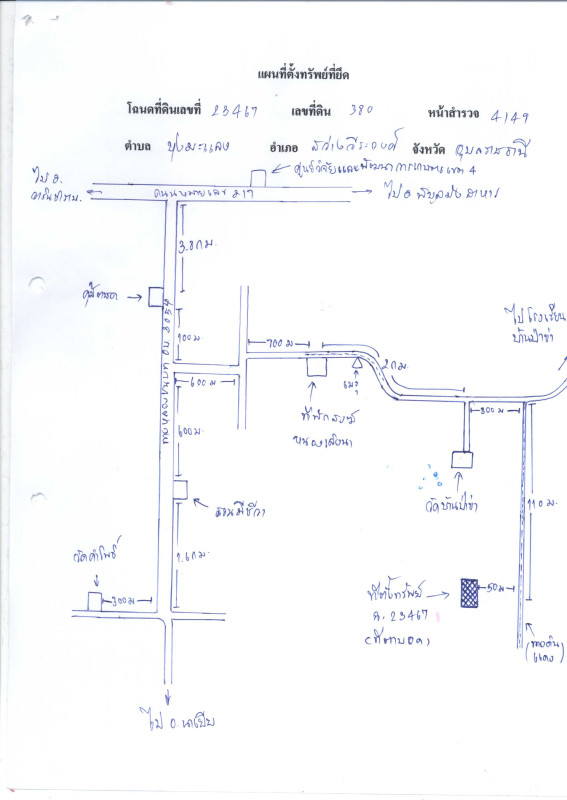 แผนที่ตั้งทรัพย์ที่ยึด
โฉนดที่ดินเลขที่ 23467 เลขที่ดิน 380 หน้าสำรวจ 4149
ตำบล บุ่งมะแลง อำเภอ สว่างวีระวงศ์ จังหวัด อุบลราชธานี
ศูนย์วิจัยและพัฒนาการเกษตรเขต 4
ไป อ.
วารินชำราบ
ถนนหมายเลข 217
ไป อ พิบูลมังสาหาร
3.8 กม.
100 ม
600 ม
700 ม
2 กม.
เมรุ
ที่พักสงฆ์
ไปโรงเรียน
บ้านป่าข่า
300 ม
วัดบ้านป่าข่า
110 ม
600 ม
สวนมีชีวา
1.6 กม.
วัดคำโพธิ์
300 ม
ที่ตั้งทรัพย์
ฉ. 23467
(ที่ตาบอด)
50 ม
(ทางดิน
แดง)
ไป อ. นาเยีย